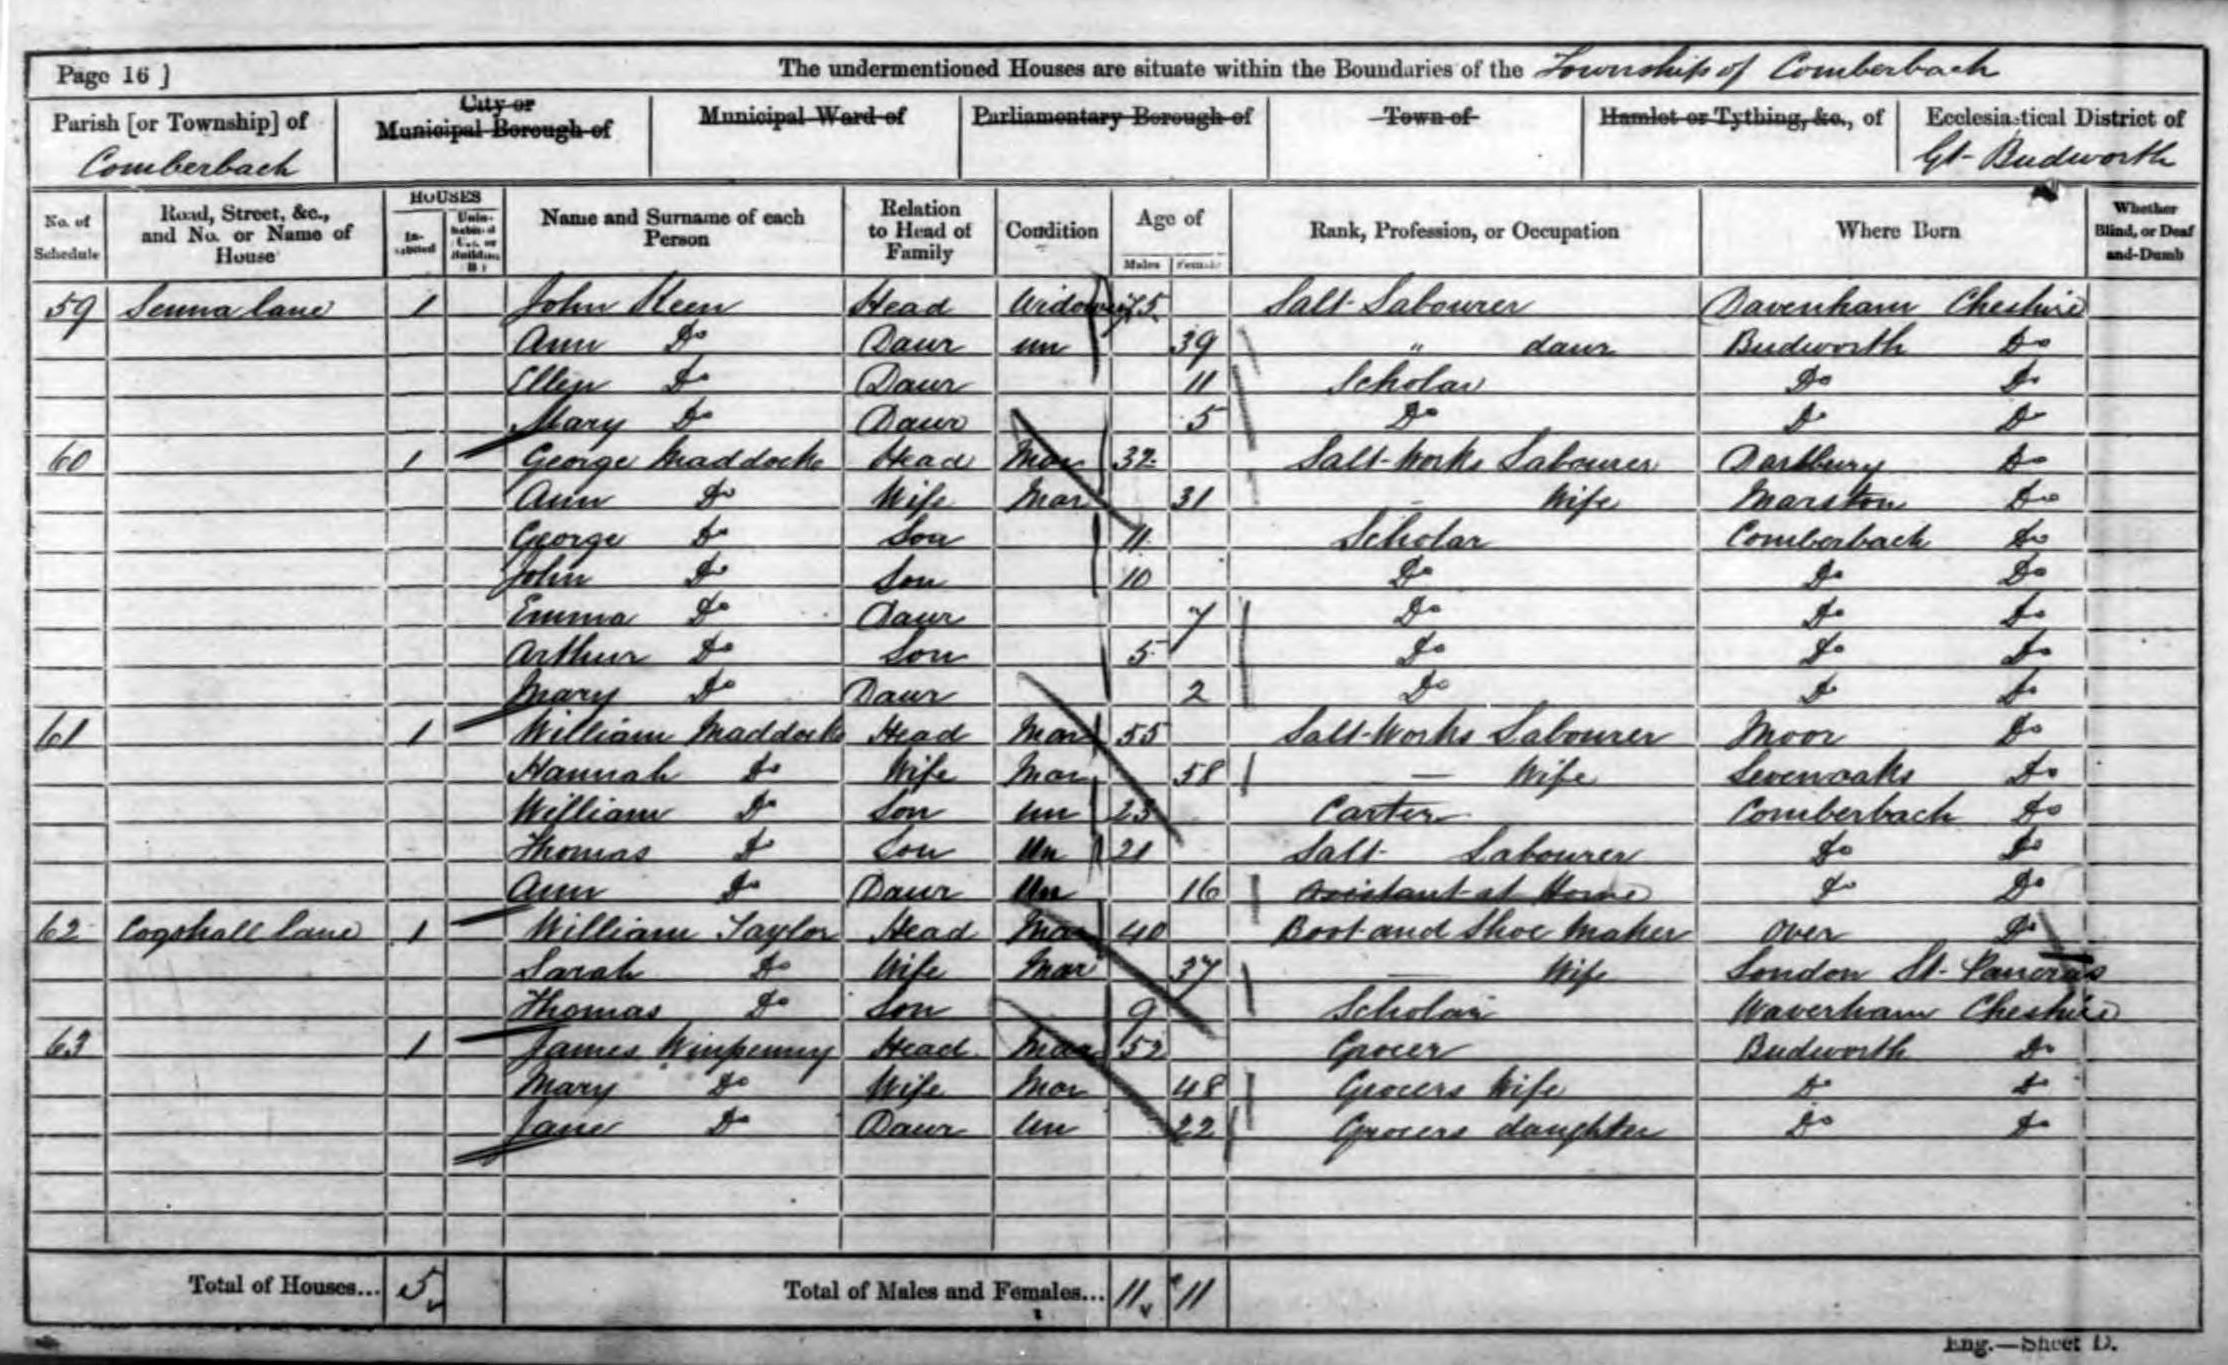 Page 16 ] The undermentioned Houses are situate within the Boundaries of the Township of Comberbach
Parish [or Township] of City or Municipal Borough of Municipal Ward of Parliamentary Borough of Town of Hamlet or Tything, &c., of Ecclesiastical District of
Comberbach Gt- Budworth
No. of Schedule Road, Street, &c., and No. or Name of House HOUSES In-habited Unin-habited (U.), or Building (B.) Name and Surname of each Person Relation to Head of Family Condition Age of Males Females Rank, Profession, or Occupation Where Born Whether Blind, or Deaf-and-Dumb
59 Senna lane 1 John Keen Head Widower 75 Salt Labourer Davenham Cheshire
Ann Do Daur un 39 " daur Budworth Do
Ellen Do Daur 11 Scholar Do Do
Mary Do Daur 5 Do Do Do
60 1 George Maddocks Head Mar 32 Salt-Works Labourer Dartbury Do
Ann Do Wife Mar 31 - Wife Marston Do
George Do Son 11 Scholar Comberbach Do
John Do Son 10 Do Do Do
Emma Do Daur 7 Do Do Do
Arthur Do Son 5 Do Do Do
Mary Do Daur 2 Do Do Do
61 1 William Maddocks Head Mar 55 Salt-Works Labourer Moor Do
Hannah Do Wife Mar 58 — Wife Sevenoaks Do
William Do Son un 23 Carter Comberbach Do
Thomas Do Son Un 21 Salt- Labourer Do Do
Ann Do Daur Un 16 Assistant at Home Do Do
62 Cogshall lane 1 William Taylor Head Mar 40 Boot and Shoe Maker Over Do
Sarah Do Wife Mar 37 — Wife London St- Pancras
Thomas Do Son 9 Scholar Waverham Cheshire
63 1 James Winpenny Head Mar 52 Grocer Budworth Do
Mary Do Wife Mar 48 Grocers Wife Do Do
Jane Do Daur Un 22 Grocers daughter Do Do
Total of Houses... 5 Total of Males and Females... 11 11
Eng.—Sheet D.